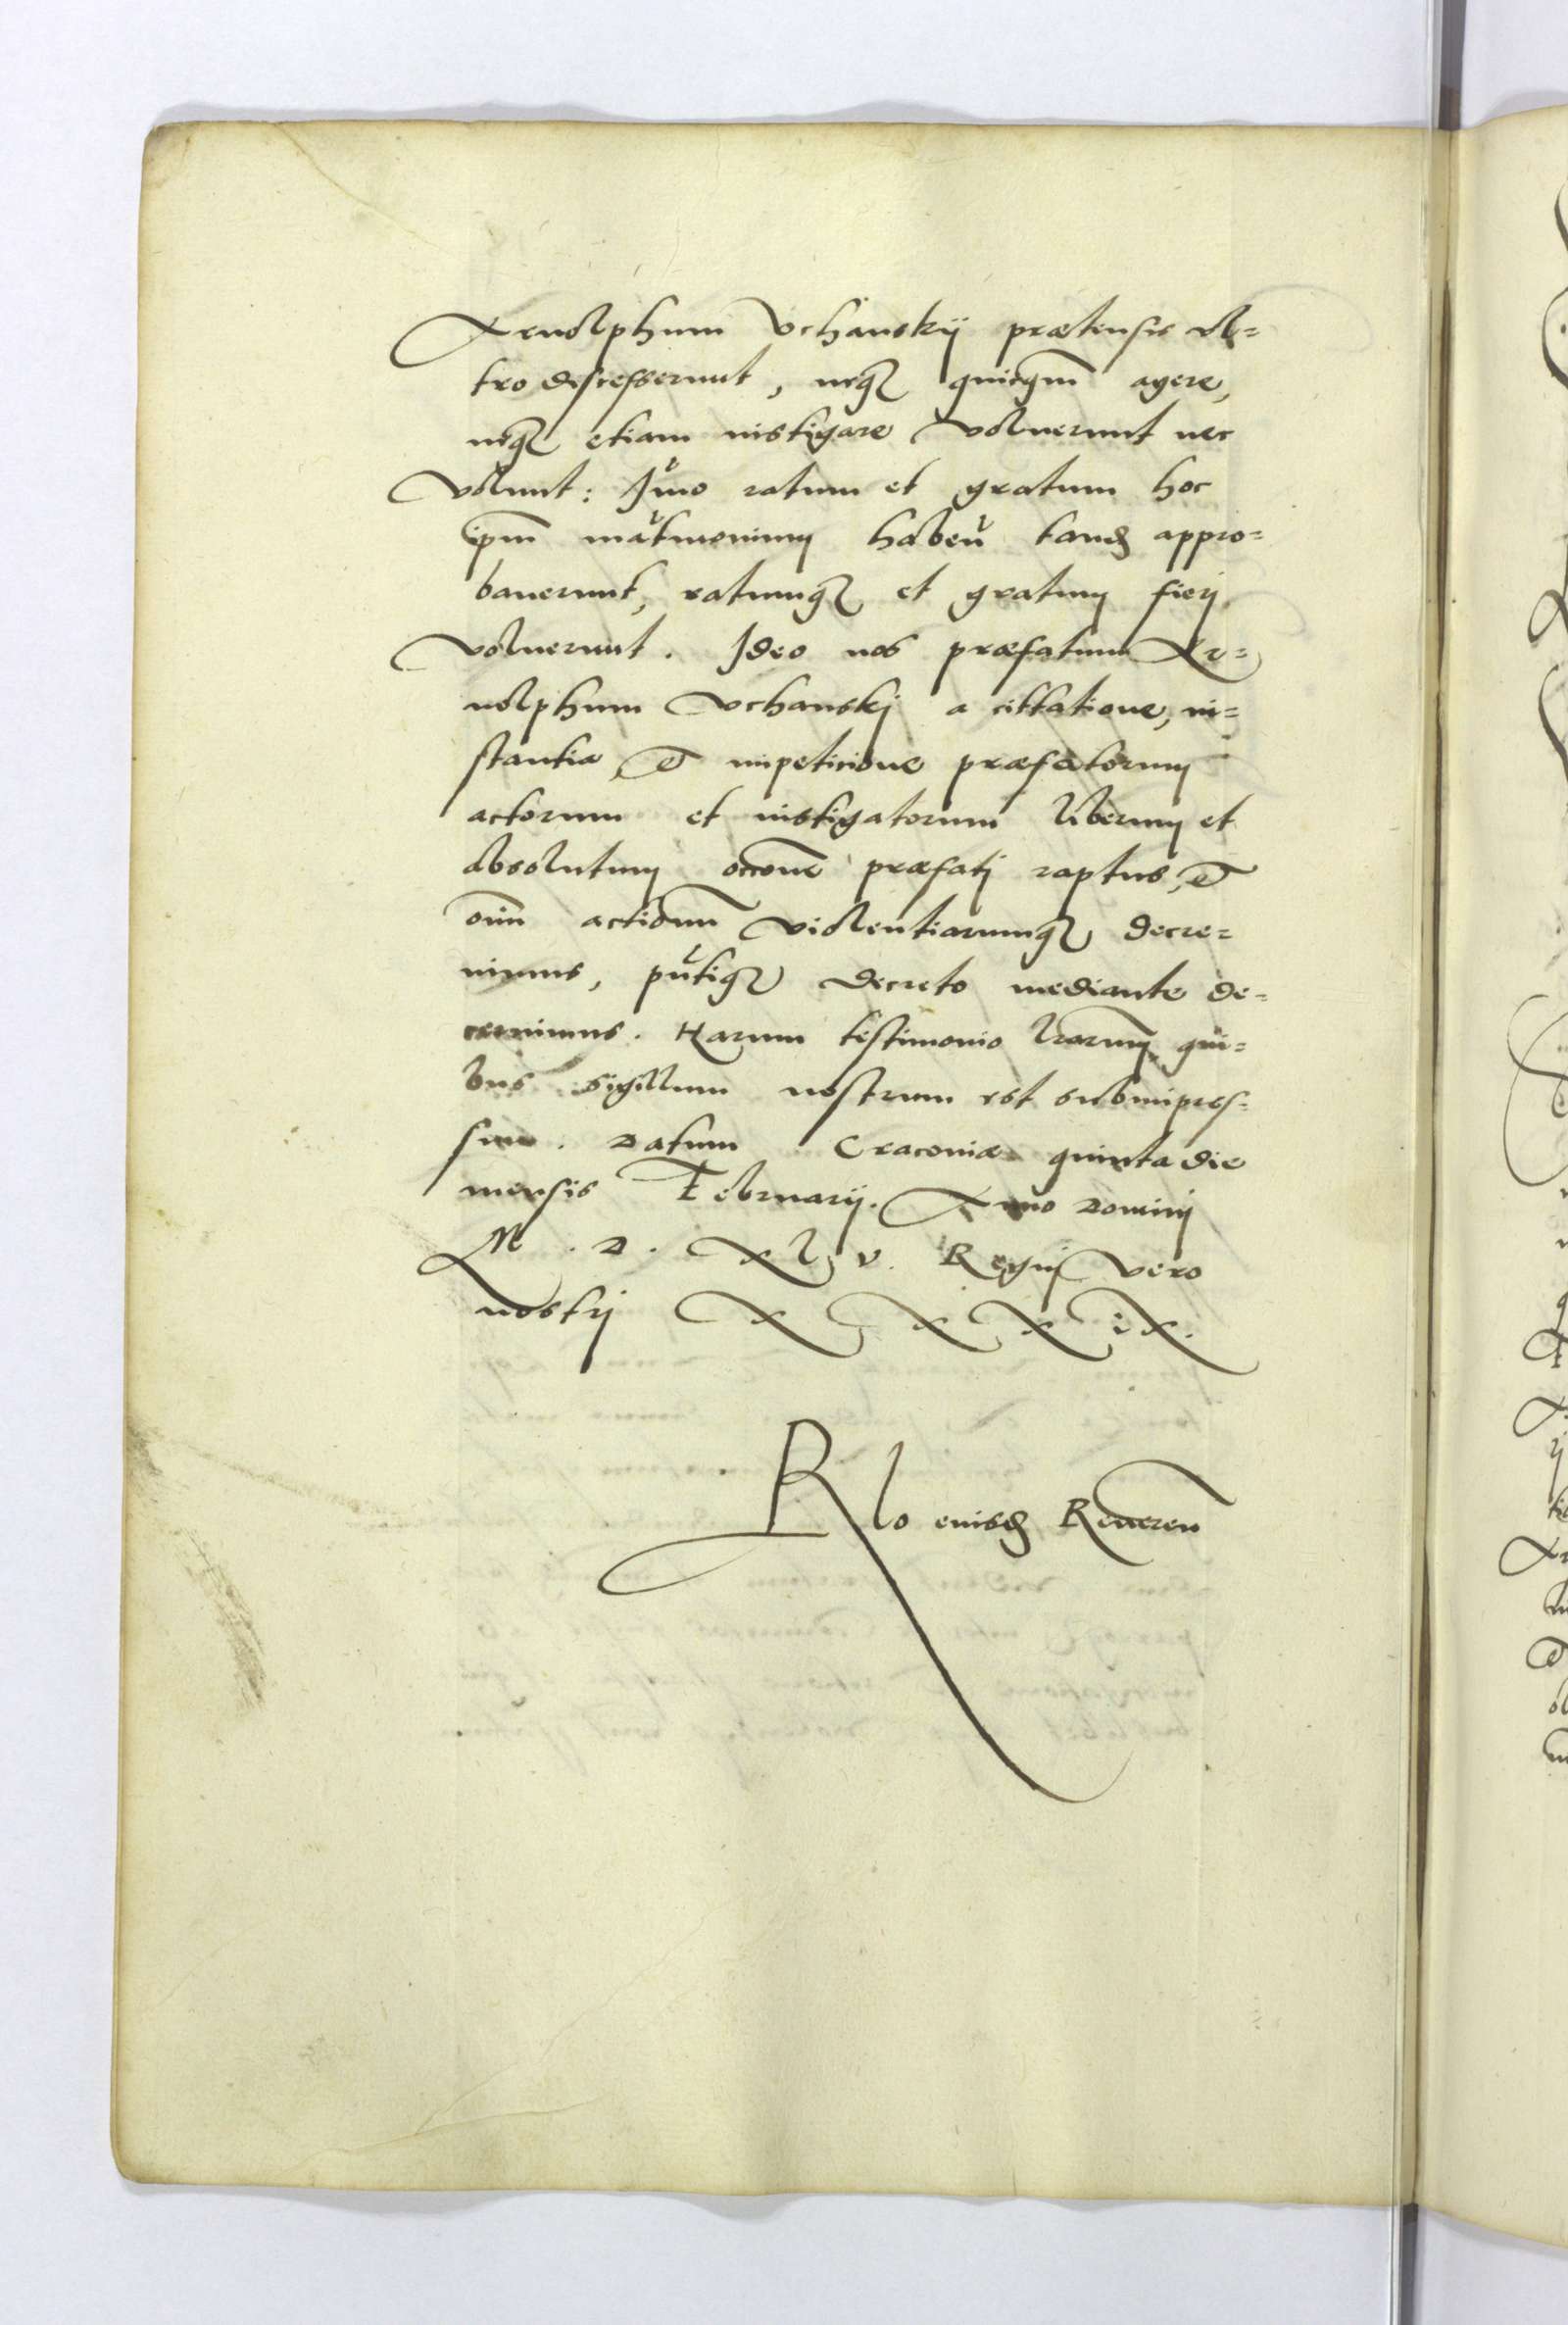 Arnolphum Vchanskij prætensis vl=
tro discesserunt, neqꝫ quicq̃m agere,
neqꝫ etiam instigare voluerunt nec
volunt: Im̃o ratum et gratum hoc
ip̃m mat̃rimonium haben̄ tandꝫ appro=
bauerunt, ratumqꝫ et gratum fierj
voluerunt. Ideo nos præfatum Ar=
nolphum Vchanskj a cittatione, in=
stantia, et impeticione præfatorum
actorum et instigatorum liberum et
absolutum occ̃one præfatj raptus, et
om̃i actionũ violentiarumqꝫ decre=
uimus, pñtiqꝫ decreto mediante de=
cernimus. Harum testimonio l̃rarum qui=
bus sigillum nostrum est subimpres=
sum. Datum Craconiæ quinta die
mensis Februarij. Anno Dominj
M. D. XLV. Regnj vero
nostrj XXXIX.
Rl̃o eiusdꝫ Reueren̄